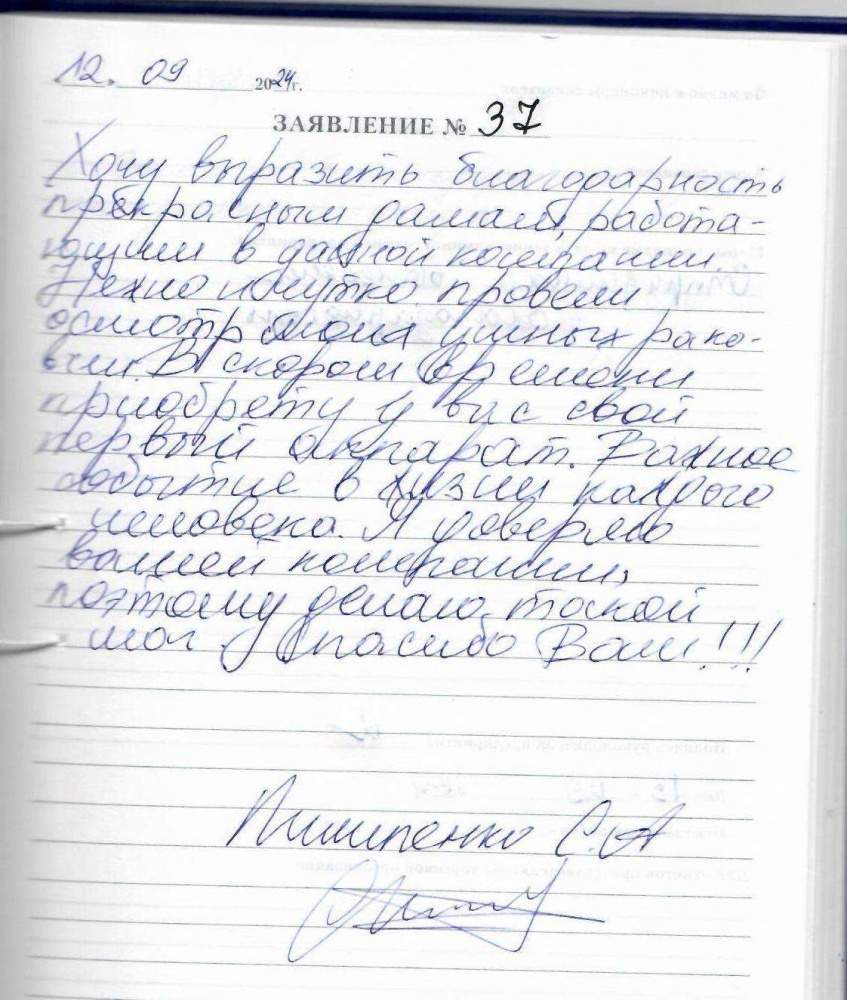 12. 09 2024г.
ЗАЯВЛЕНИЕ № 37
Хочу выразить благодарность
прекрасным дамам, работа-
ющим в данной компании.
Нежно и чутко провели
осмотр моих ушных рако-
вин. В скором времени
приобрету у вас свой
первый аппарат. Важное
событие в жизни каждого
человека. Я доверяю
вашей компании,
поэтому делаю такой
шаг. Спасибо Вам!!!
Пилипенко С.А